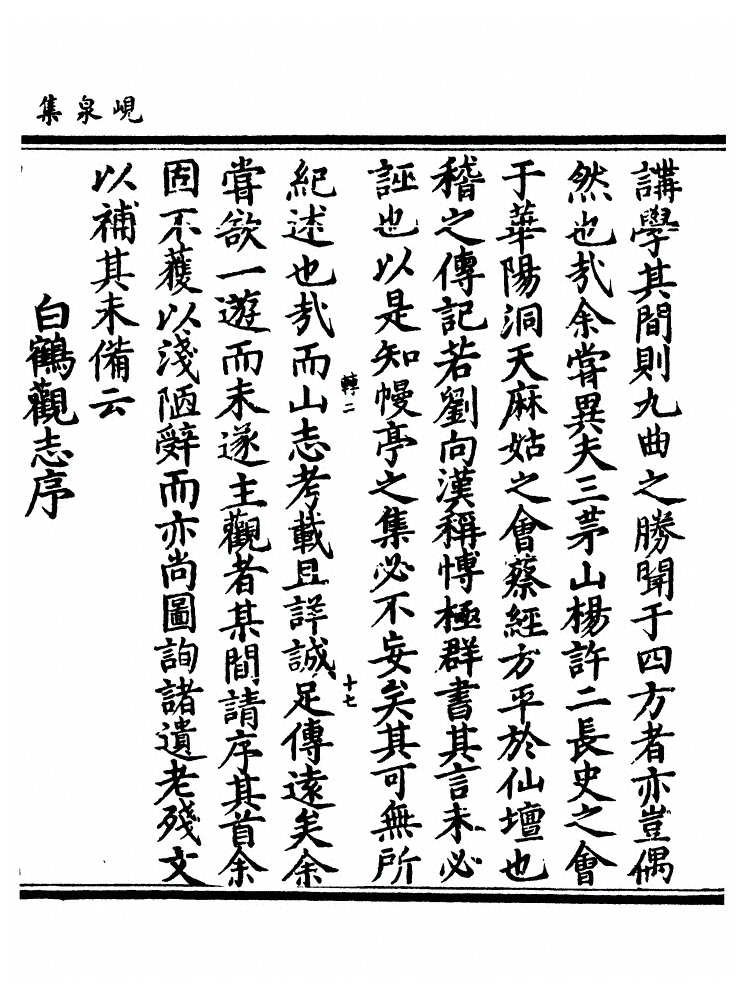 峴泉集
講學其間則九曲之勝聞于四方者亦豈偶
然也㢤余甞異夫三茅山楊許二長史之會
于華陽洞天麻姑之會蔡經方平於仙壇也
稽之傳記若劉向漢稱愽極群書其言未必
誣也以是知幔亭之集必不妄矣其可無所
轉二
十七
紀述也㢤而山志考載且詳誠足傳遠矣余
甞欲一遊而未遂主觀者某間請序其首余
固不獲以淺陋辭而亦尚圖詢諸遺老殘文
以補其未備云
白鶴觀志序